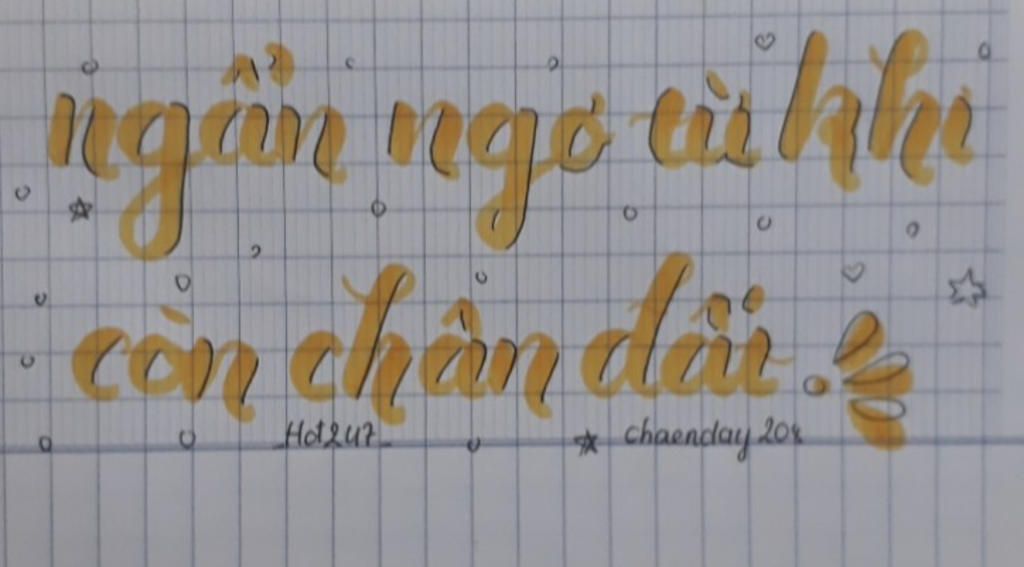 ngẩn ngơ từ khi
còn chân dài.
Hot247 chaenday 208